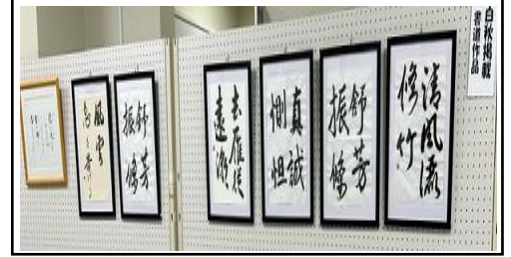 白秋掲載
書道作品
清風灑
修竹
舒芳
振條
真誠
惻怛
去雁
遠
舒芳
振條
風雲